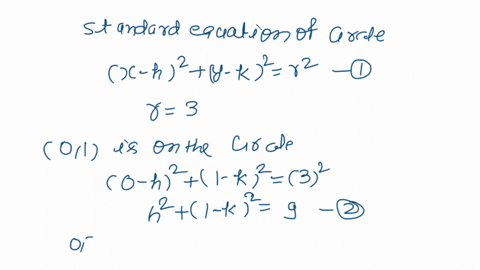 standard equation of circle
(x-h)²+(y-k)²=r² —①
r=3
(0,1) is on the circle
(0-h)²+(1-k)²=(3)²
h²+(1-k)²= 9 —②